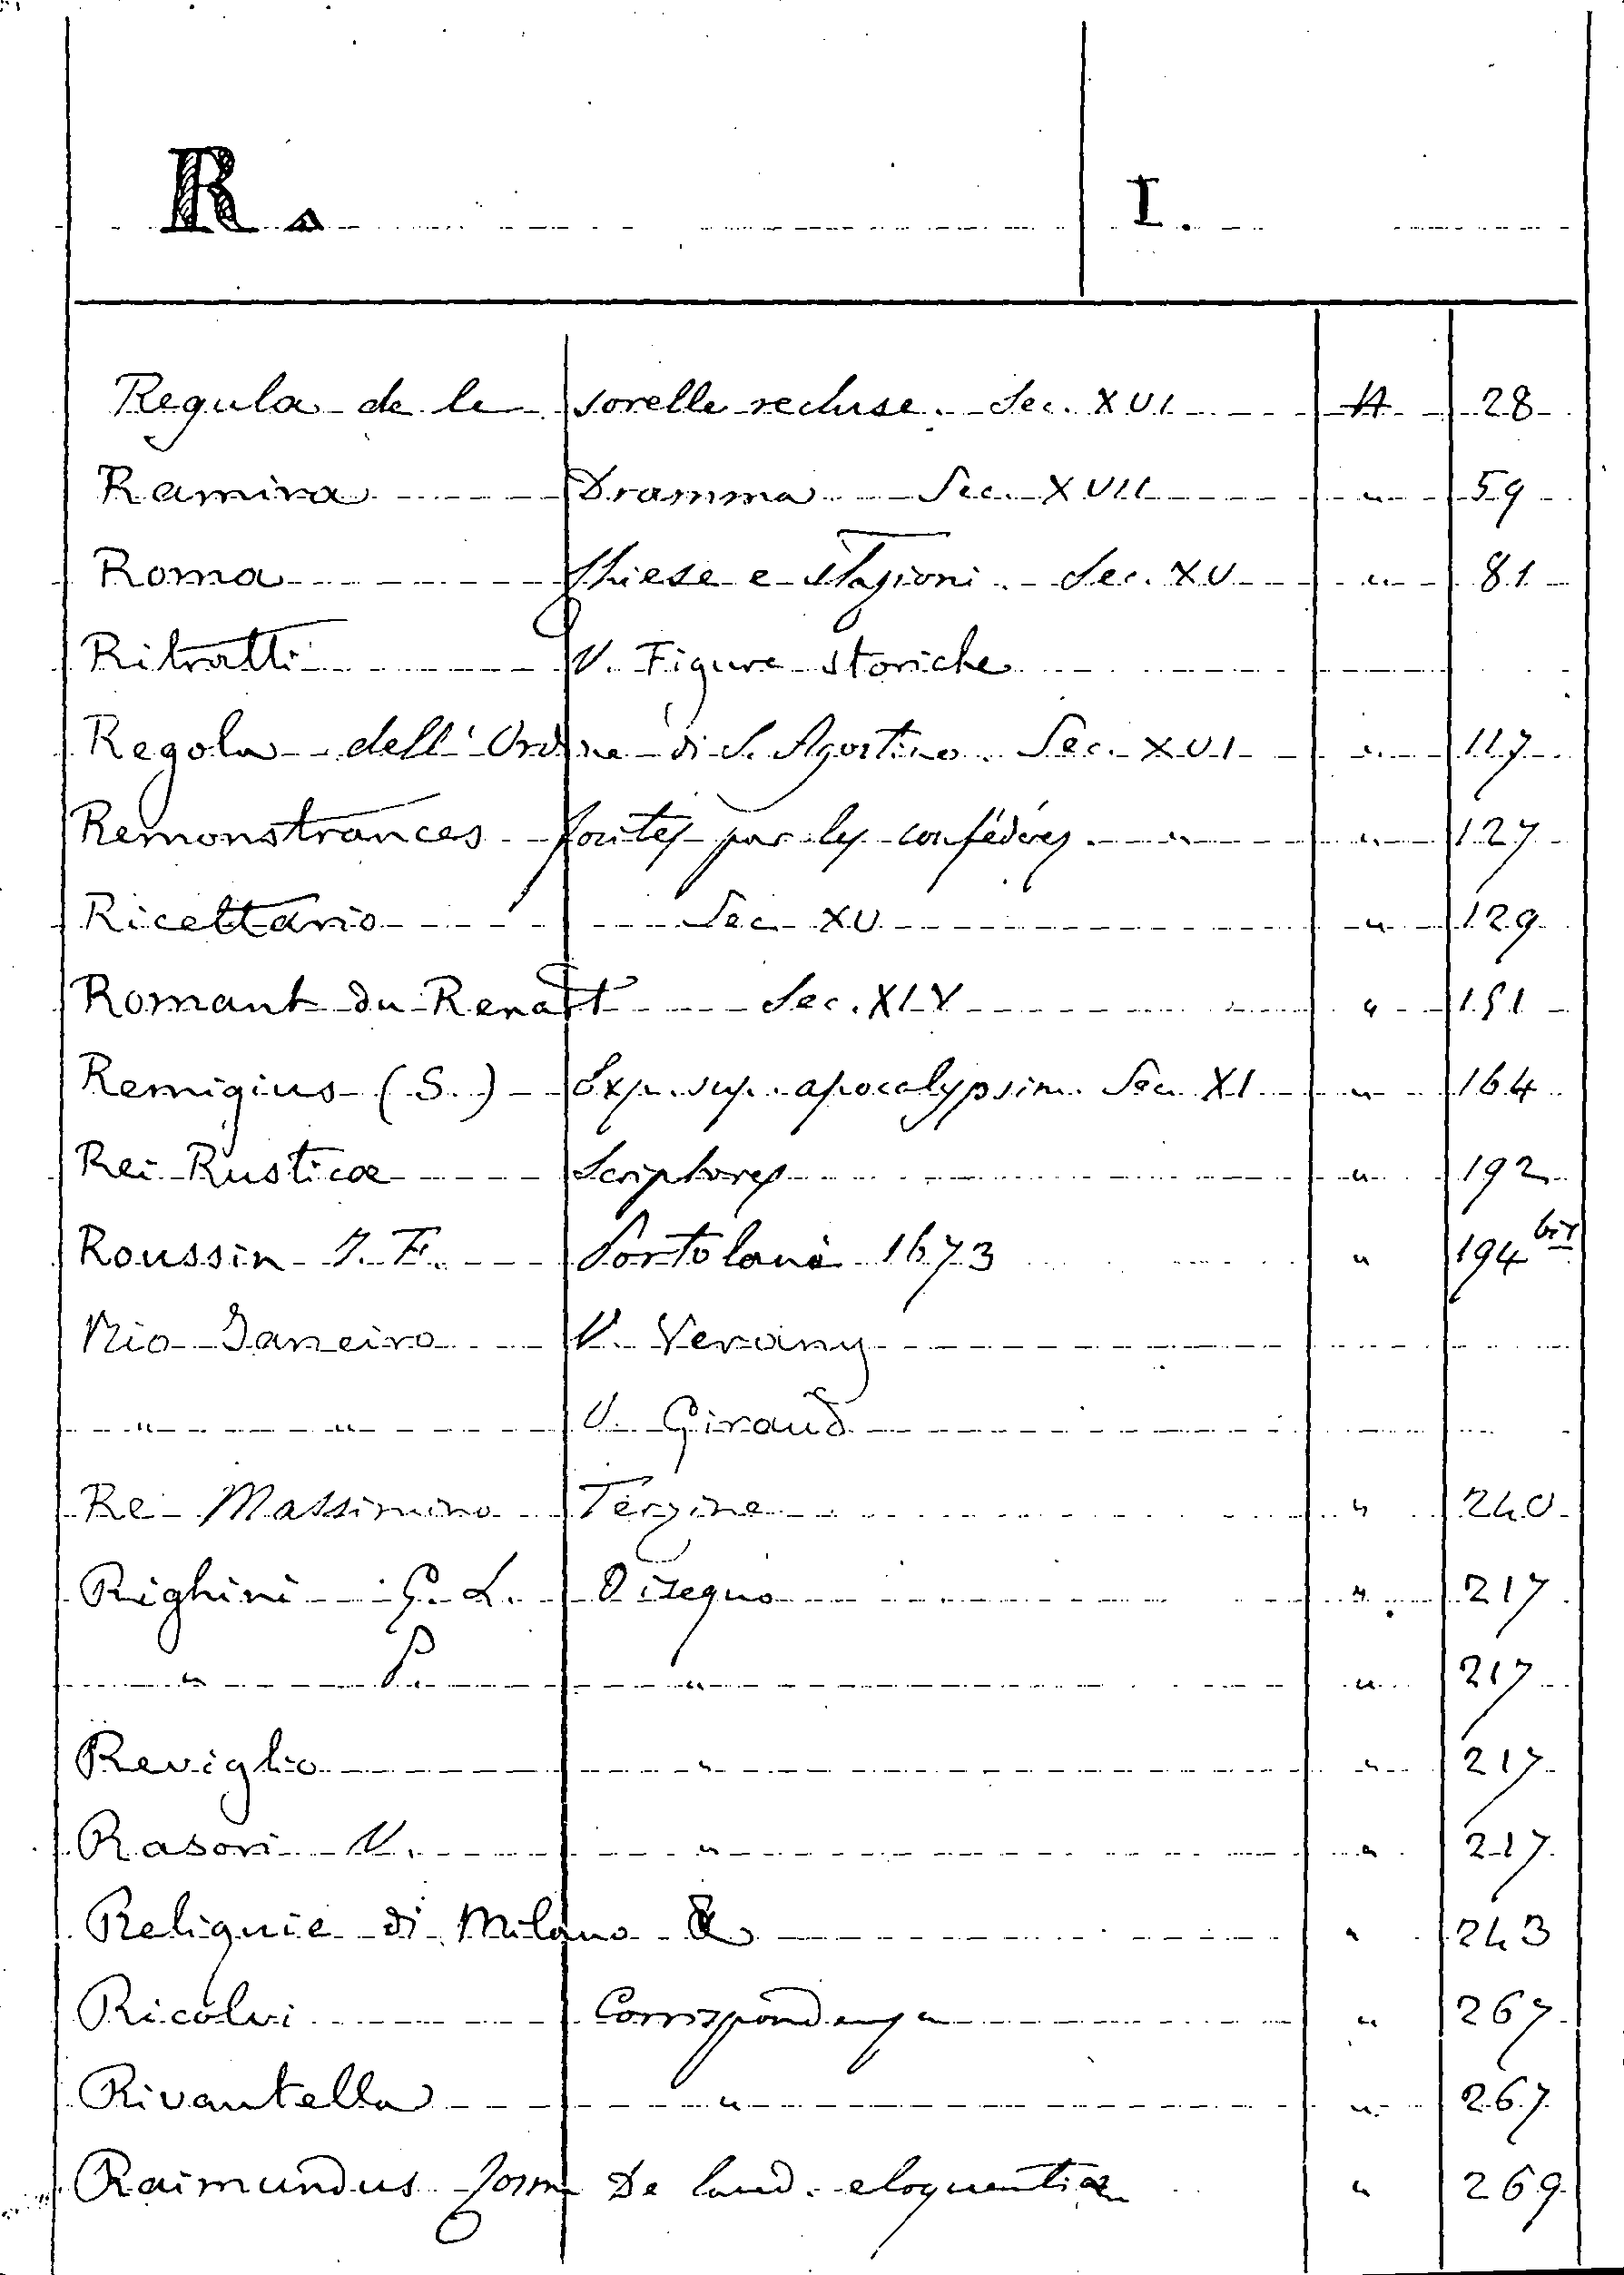 R. I.
Regula de le sorelle recluse. Sec. XVI H 28
Ramira Dramma Sec. XVII " 59
Roma Chiese e stagioni. Sec. XV " 81
Ritratti V. Figure storiche
Regola dell'Ordine di S. Agostino. Sec. XVI " 117
Remonstrances faites par les confédérés. " " 127
Ricettario Sec. XV " 129
Romant du Renart Sec. XIV " 151
Remigius (S.) Exp. sup. apocalypsim. Sec. XI " 164
Rei Rusticae Scriptores " 192
Roussin J. F. Portolani 1673 " 194 bis
Rio Janeiro V. Verany
" " V. Giraud
Re Massimino Terzine " 240
Righini G. L. Disegno " 217
" P. " " 217
Reviglio " " 217
Rasori V. " " 217
Reliquie di Milano & " 243
Ricolvi Corrispondenza " 267
Rivantella " " 267
Raimundus De laud. eloquentiae " 269